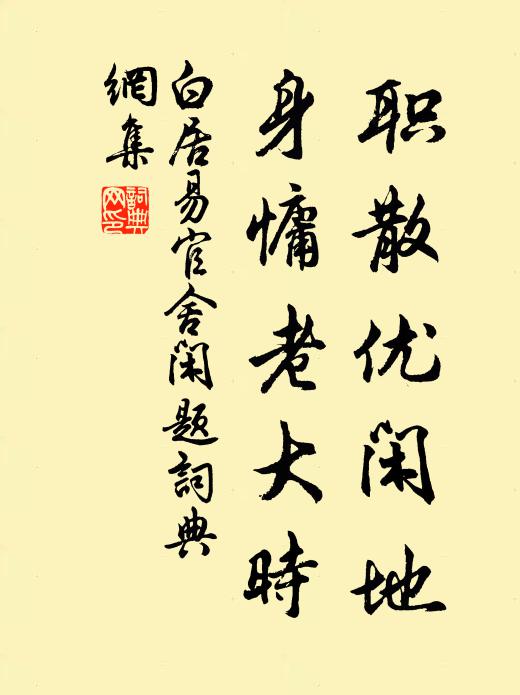 职散优闲地
身慵老大时
白居易官舍闲题詞典
網集
詞典
网印